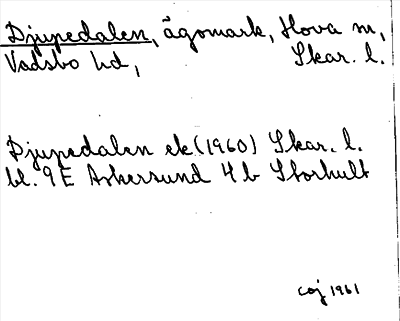 Djupedalen, ägomark, Hova m,
Vadsbo hd, Skar. l.
Djupedalen ek (1960) Skar. l.
bl. 9E Askersund 4b Storhult
coj 1961